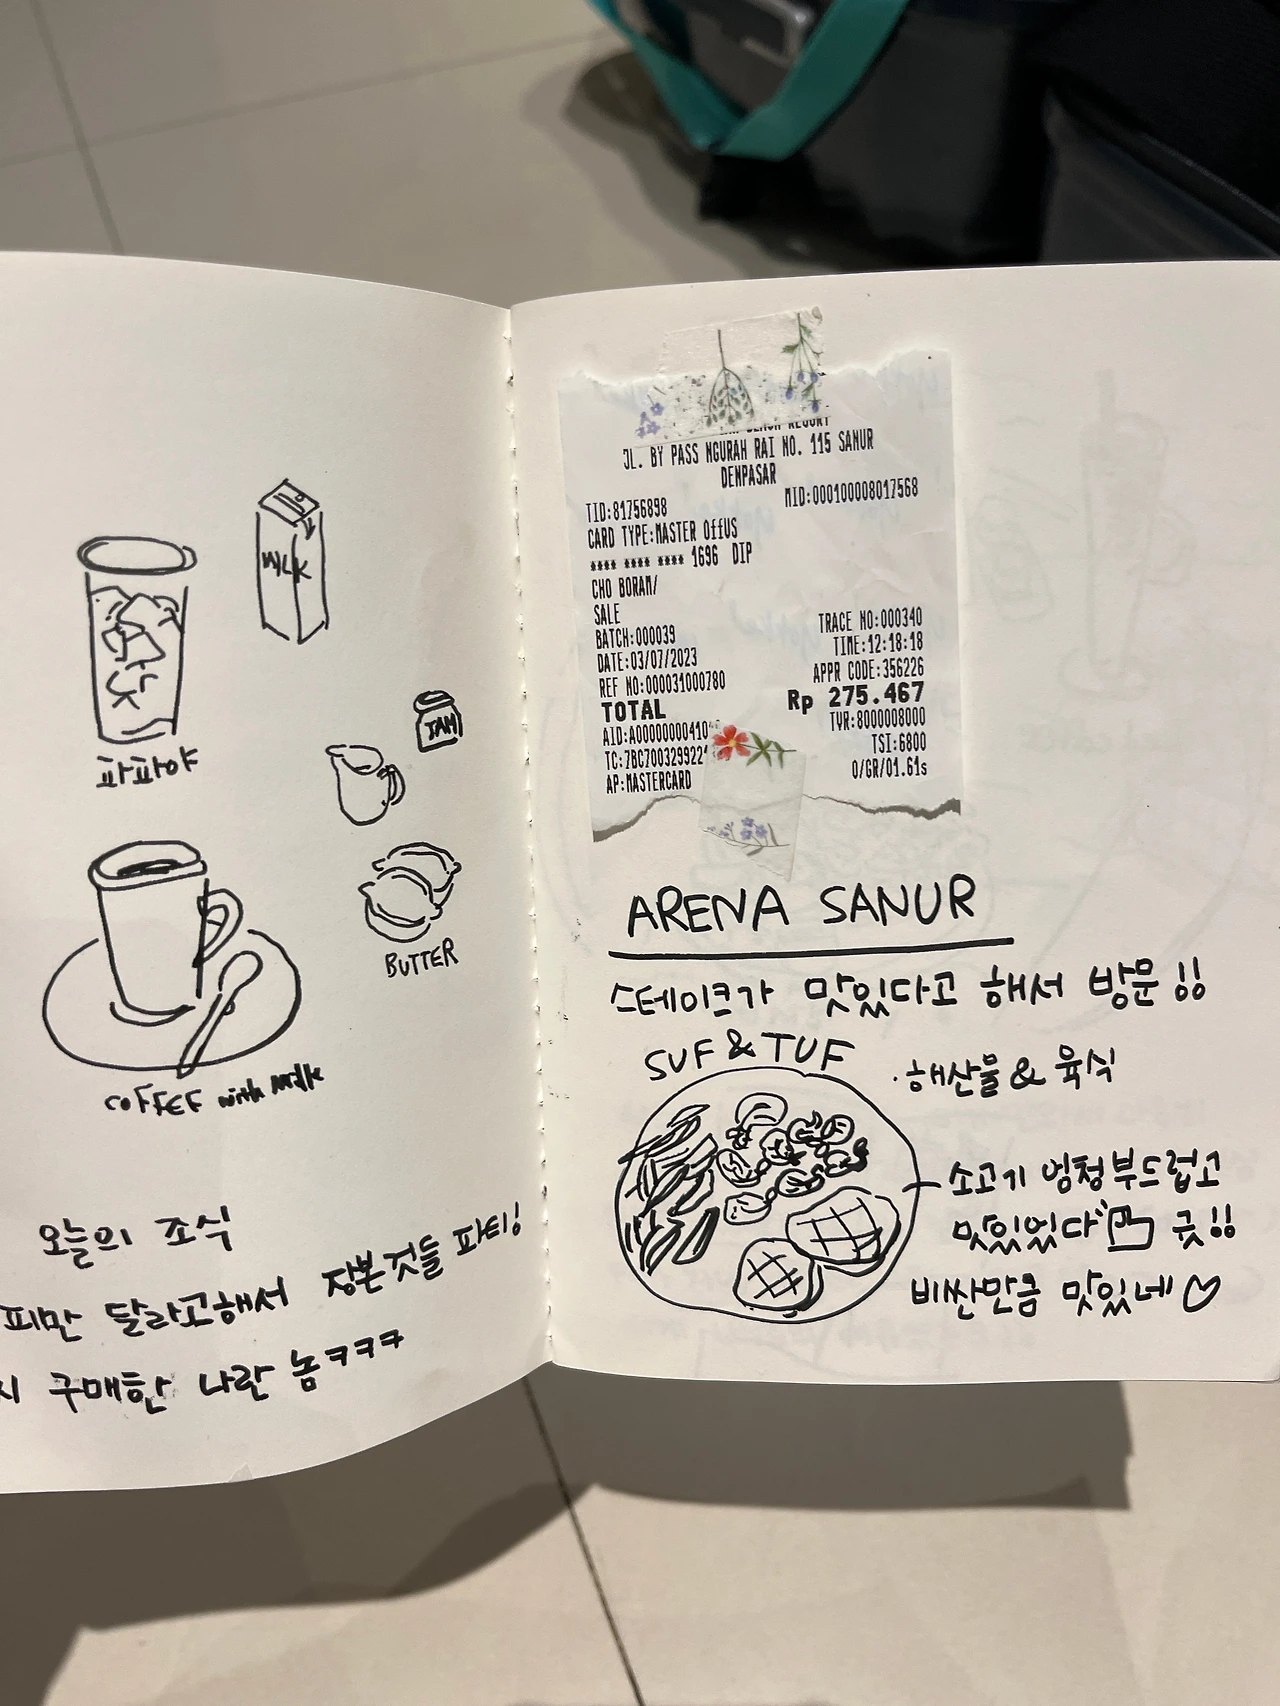 MILK
파파야
JAM
BUTTER
COFFEE with Milk
오늘의 조식
피만 달라고해서 장본것들 파티!
시 구매한 나란 놈ㅋㅋㅋ
BEACH RESORT
JL. BY PASS NGURAH RAI NO. 115 SANUR
DENPASAR
TID:81756898 MID:000100008017568
CARD TYPE:MASTER OffUS
**** **** **** 1696 DIP
CHO BORAM/
SALE
BATCH:000039 TRACE NO:000340
DATE:03/07/2023 TIME:12:18:18
REF NO:000031000780 APPR CODE:356226
TOTAL Rp 275.467
AID:A00000000410 TVR:8000008000
TC:7BC700329922 TSI:6800
AP:MASTERCARD 0/GR/01.61s
ARENA SANUR
스테이크가 맛있다고 해서 방문!!
SUF & TUF
·해산물 & 육식
소고기 엄청부드럽고
맛있었다 굿!!
비싼만큼 맛있네♡